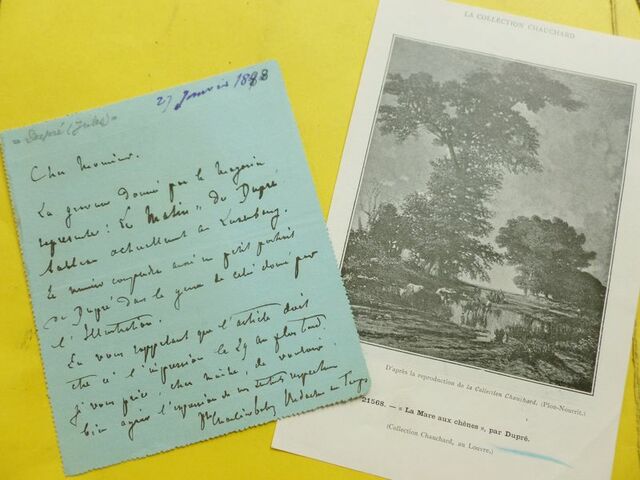 27 Janvier 1888
" Dupré (Jules) "
Cher Monsieur.
La gravure donnée par le Magasin
représente : Le Matin " de Dupré
tableau actuellement au Luxembourg.
Le numéro comprendra aussi un petit portrait
de Dupré dans le genre de celui donné par
l'Illustration.
En vous rappelant que l'article doit
être à l'impression le 29 au plus tard
je vous prie, cher maître, de vouloir
bien agréer l'expression de mes sentiments
LA COLLECTION CHAUCHARD
D'après la reproduction de la Collection Chauchard. (Plon-Nourrit.)
21568. — « La Mare aux chênes », par Dupré.
(Collection Chauchard, au Louvre.)